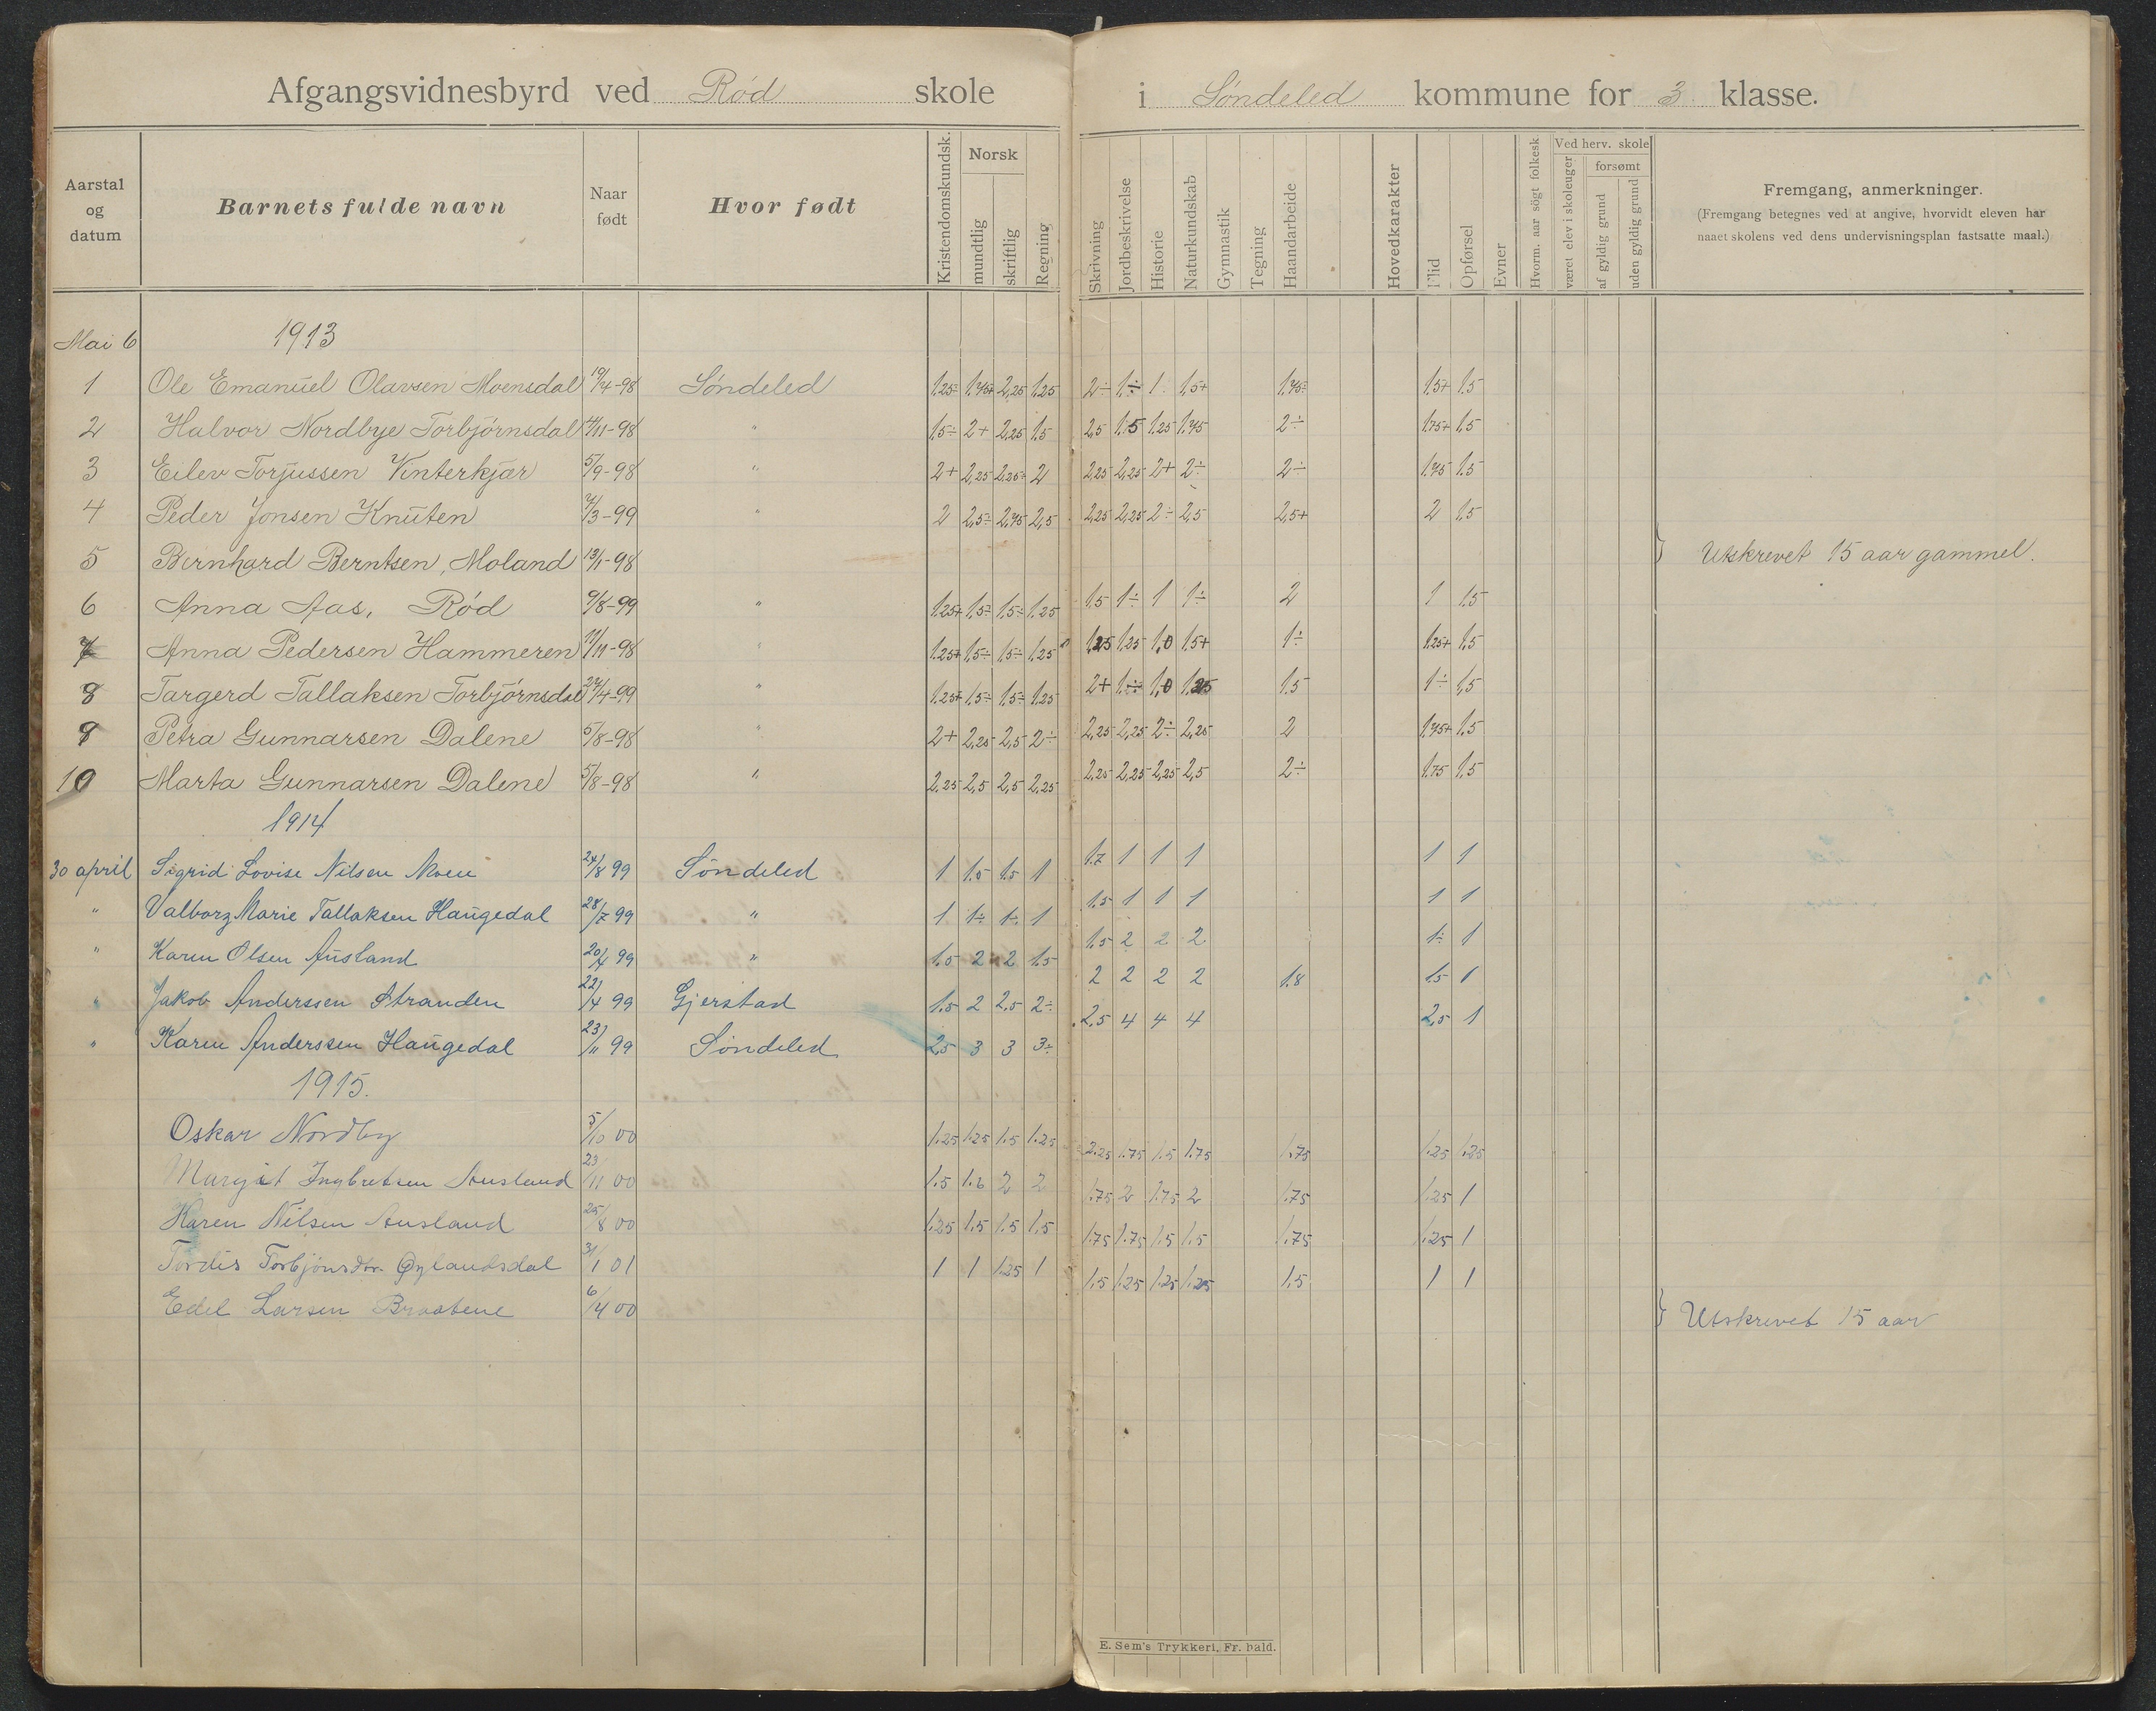 Afgangsvidnesbyrd ved Rød skole i Søndeled kommune for 3 klasse.
Aarstal og datum | Barnets fulde navn | Naar født | Hvor født | Kristendomskundsk. | Norsk mundtlig | skriftlig | Regning | Skrivning | Jordbeskrivelse | Historie | Naturkundskab | Gymnastik | Tegning | Haandarbeide | Hovedkarakter | Flid | Opførsel | Evner | Hvorm. aar søgt folkesk. | Ved herv. skole | været elev i skoleuger | forsømt | af gyldig grund | uden gyldig grund | Fremgang, anmerkninger.
(Fremgang betegnes ved at angive, hvorvidt eleven har
naaet skolens ved dens undervisningsplan fastsatte maal.)
Mai 6 1913
1 Ole Emanuel Olavsen Moensdal 19/4-98 Søndeled 1.25÷ 1.75+ 2,25 1,25 2÷ 1÷ 1 1,5+ 1,75÷ 1,5+ 1.5
2 Halvor Nordbye Torbjørnsdal 14/11-98 " 1,5÷ 2+ 2,25 1.5 2,5 1.5 1,25 1.75 2÷ 1.75+ 1.5
3 Eilev Torjussen Vinterkjær 5/9-98 " 2+ 2,25 2,25+ 2 2,25 2,25 2+ 2÷ 2÷ 1.75 1.5
4 Peder Jonsen Knuten 7/3-99 " 2 2,5÷ 2,75 2,5 2,25 2,25 2÷ 2,5 2,5+ 2 1,5
5 Bernhard Berntsen, Moland 13/1-98 } Utskrevet 15 aar gammel.
6 Anna Aas, Rød 9/8-99 " 1.25+ 1,5÷ 1.5÷ 1,25 1.5 1÷ 1 1÷ 2 1 1.5
7 Anna Pedersen Hammeren 11/11-98 " 1.25+ 1,5÷ 1,5÷ 1,25 1,25 1,25 1,0 1.5+ 1÷ 1,25+ 1,5
8 Targerd Tallaksen Torbjørnsdal 24/4-99 " 1.25+ 1,5÷ 1.5÷ 1.25 2+ 1÷ 1,0 1.25 1.5 1÷ 1,5
9 Petra Gunnarsen Dalene 5/8-98 " 2+ 2,25 2,5 2÷ 2,25 2,25 2÷ 2,25 2 1,75+ 1.5
10 Marta Gunnarsen Dalene 5/8-98 " 2,25 2,5 2,5 2,25 2,25 2,25 2,25 2,5 2÷ 1,75 1.5
1914
30 april Sigrid Lovise Nilsen Moen 24/8 99 Søndeled 1 1.5 1.5 1 1.7 1 1 1 1 1
" Valborg Marie Tallaksen Haugedal 28/7 99 " 1 1÷ 1÷ 1 1.5 1 1 1 1 1
" Karen Olsen Ausland 20/4 99 " 1.5 2 2 1.5 1.5 2 2 2 1÷ 1
" Jakob Anderssen Stranden 22/4 99 Gjerstad 1.5 2 2,5 2÷ 2 2 2 2 1.8 1.5 1
" Karen Anderssen Haugedal 23/11 99 Søndeled 2,5 3 3 3÷ 2,5 4 4 4 2,5 1
1915.
Oskar Nordby 5/10 00 1.25 1.25 1.5 1.25 2.25 1.75 1.5 1.75 1.75 1.25 1.25
Margit Ingbretsen Ausland 23/11 00 1.5 1.6 2 2 1.75 2 1.75 2 1.75 1.25 1
Karen Nilsen Ausland 25/8 00 1.25 1.5 1.5 1.5 1.75 1.75 1.5 1.5 1.75 1.25 1
Tordis Torbjønsdtr. Øylandsdal 31/1 01 1 1 1.25 1 1.5 1.25 1.25 1.25 1.5 1 1
Edel Larsen Braatene 6/4 00 } Utskrevet 15 aar
E. Sem's Trykkeri, Fr. hald.